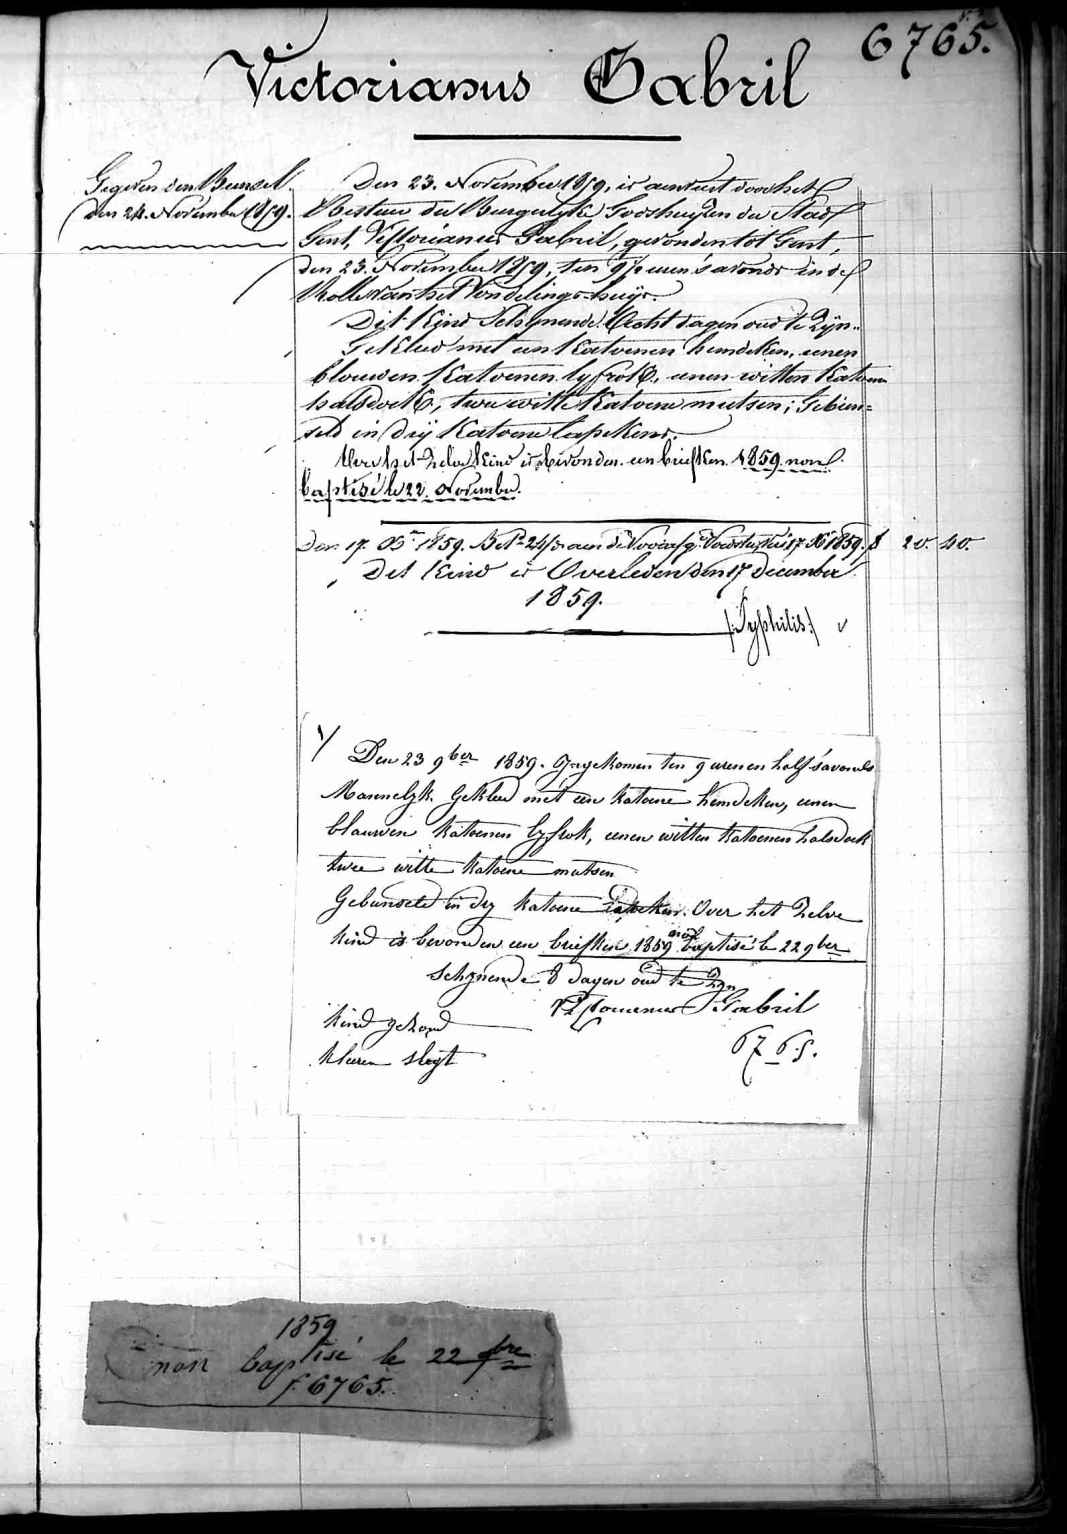 6765.
Victorianus Gabril
Gegeven den Bunsel.
den 24. November 1859.
Den 23. November 1859, is aenveerd door het
Bestuer der Burgerlyke Godshuyzen der Stad
Gent, Victorianus Gabril, gevonden tot Gent,
den 23. November 1859, ten 9½ uren 's avonds in de
Rolle van het Vondelings-huys.
Dit Kind Schynende Acht dagen oud te Zyn.
Gekleed met een Katoenen hemdeken, eenen
blouwen Katoenen lyfrok, eenen witten Katoenen
halsdoek, twee witte Katoene mutsen; Gebun=
seld in dry Katoene lapekens.
Over het zelve Kind is bevonden een briefken 1859 non
baptisé le 22. Novembre.
Den 17. Xbr 1859. 17 Xbr 1859. f 20. 40.
Dit Kind is Overleden den 17 December
1859.
/:Syphilis:/
1/
Den 23 9ber 1859. Ingekomen ten 9 uren en half s'avonds
Mannelyk. Gekleed met een katoene hemdeken, eenen
blauwen katoenen lyfrok, eenen witten katoenen halsdoek
twee witte katoene mutsen
Gebunseld in dry katoene lapeken. Over het Zelve
kind is bevonden een briefken 1859 non baptisé le 22 9ber
Schynende 8 dagen oud te Zyn
Victorianus Gabril
kind gezond
kleeren slegt
6765.
1859
non baptisé le 22 9bre
f 6765.